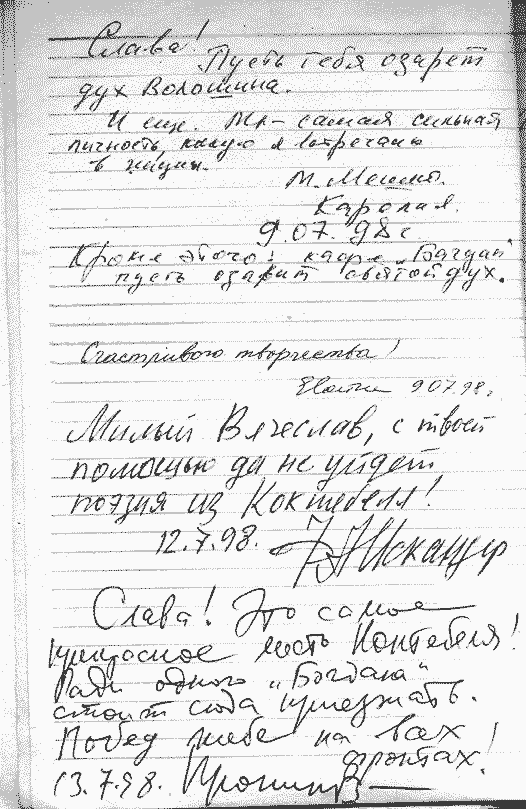 Слава!
Пусть тебя озарет
дух Волошина.
И еще. Ты – самая сильная
личность, какую я встречал
в жизни.
М.
9.07.98 г
Кроме этого: кафе „Богдан"
пусть озарит святой дух.
Счастливого творчества!
9 07.98.
Милый Вячеслав, с твоей
помощью да не уйдет
поэзия из Коктебеля!
12.7.98. Ф Искандер
Слава! Это самое
прекрасное место Коктебеля!
Ради одного „Богдана"
стоит сюда приезжать.
Побед тебе на всех
фронтах!
13.7.98.